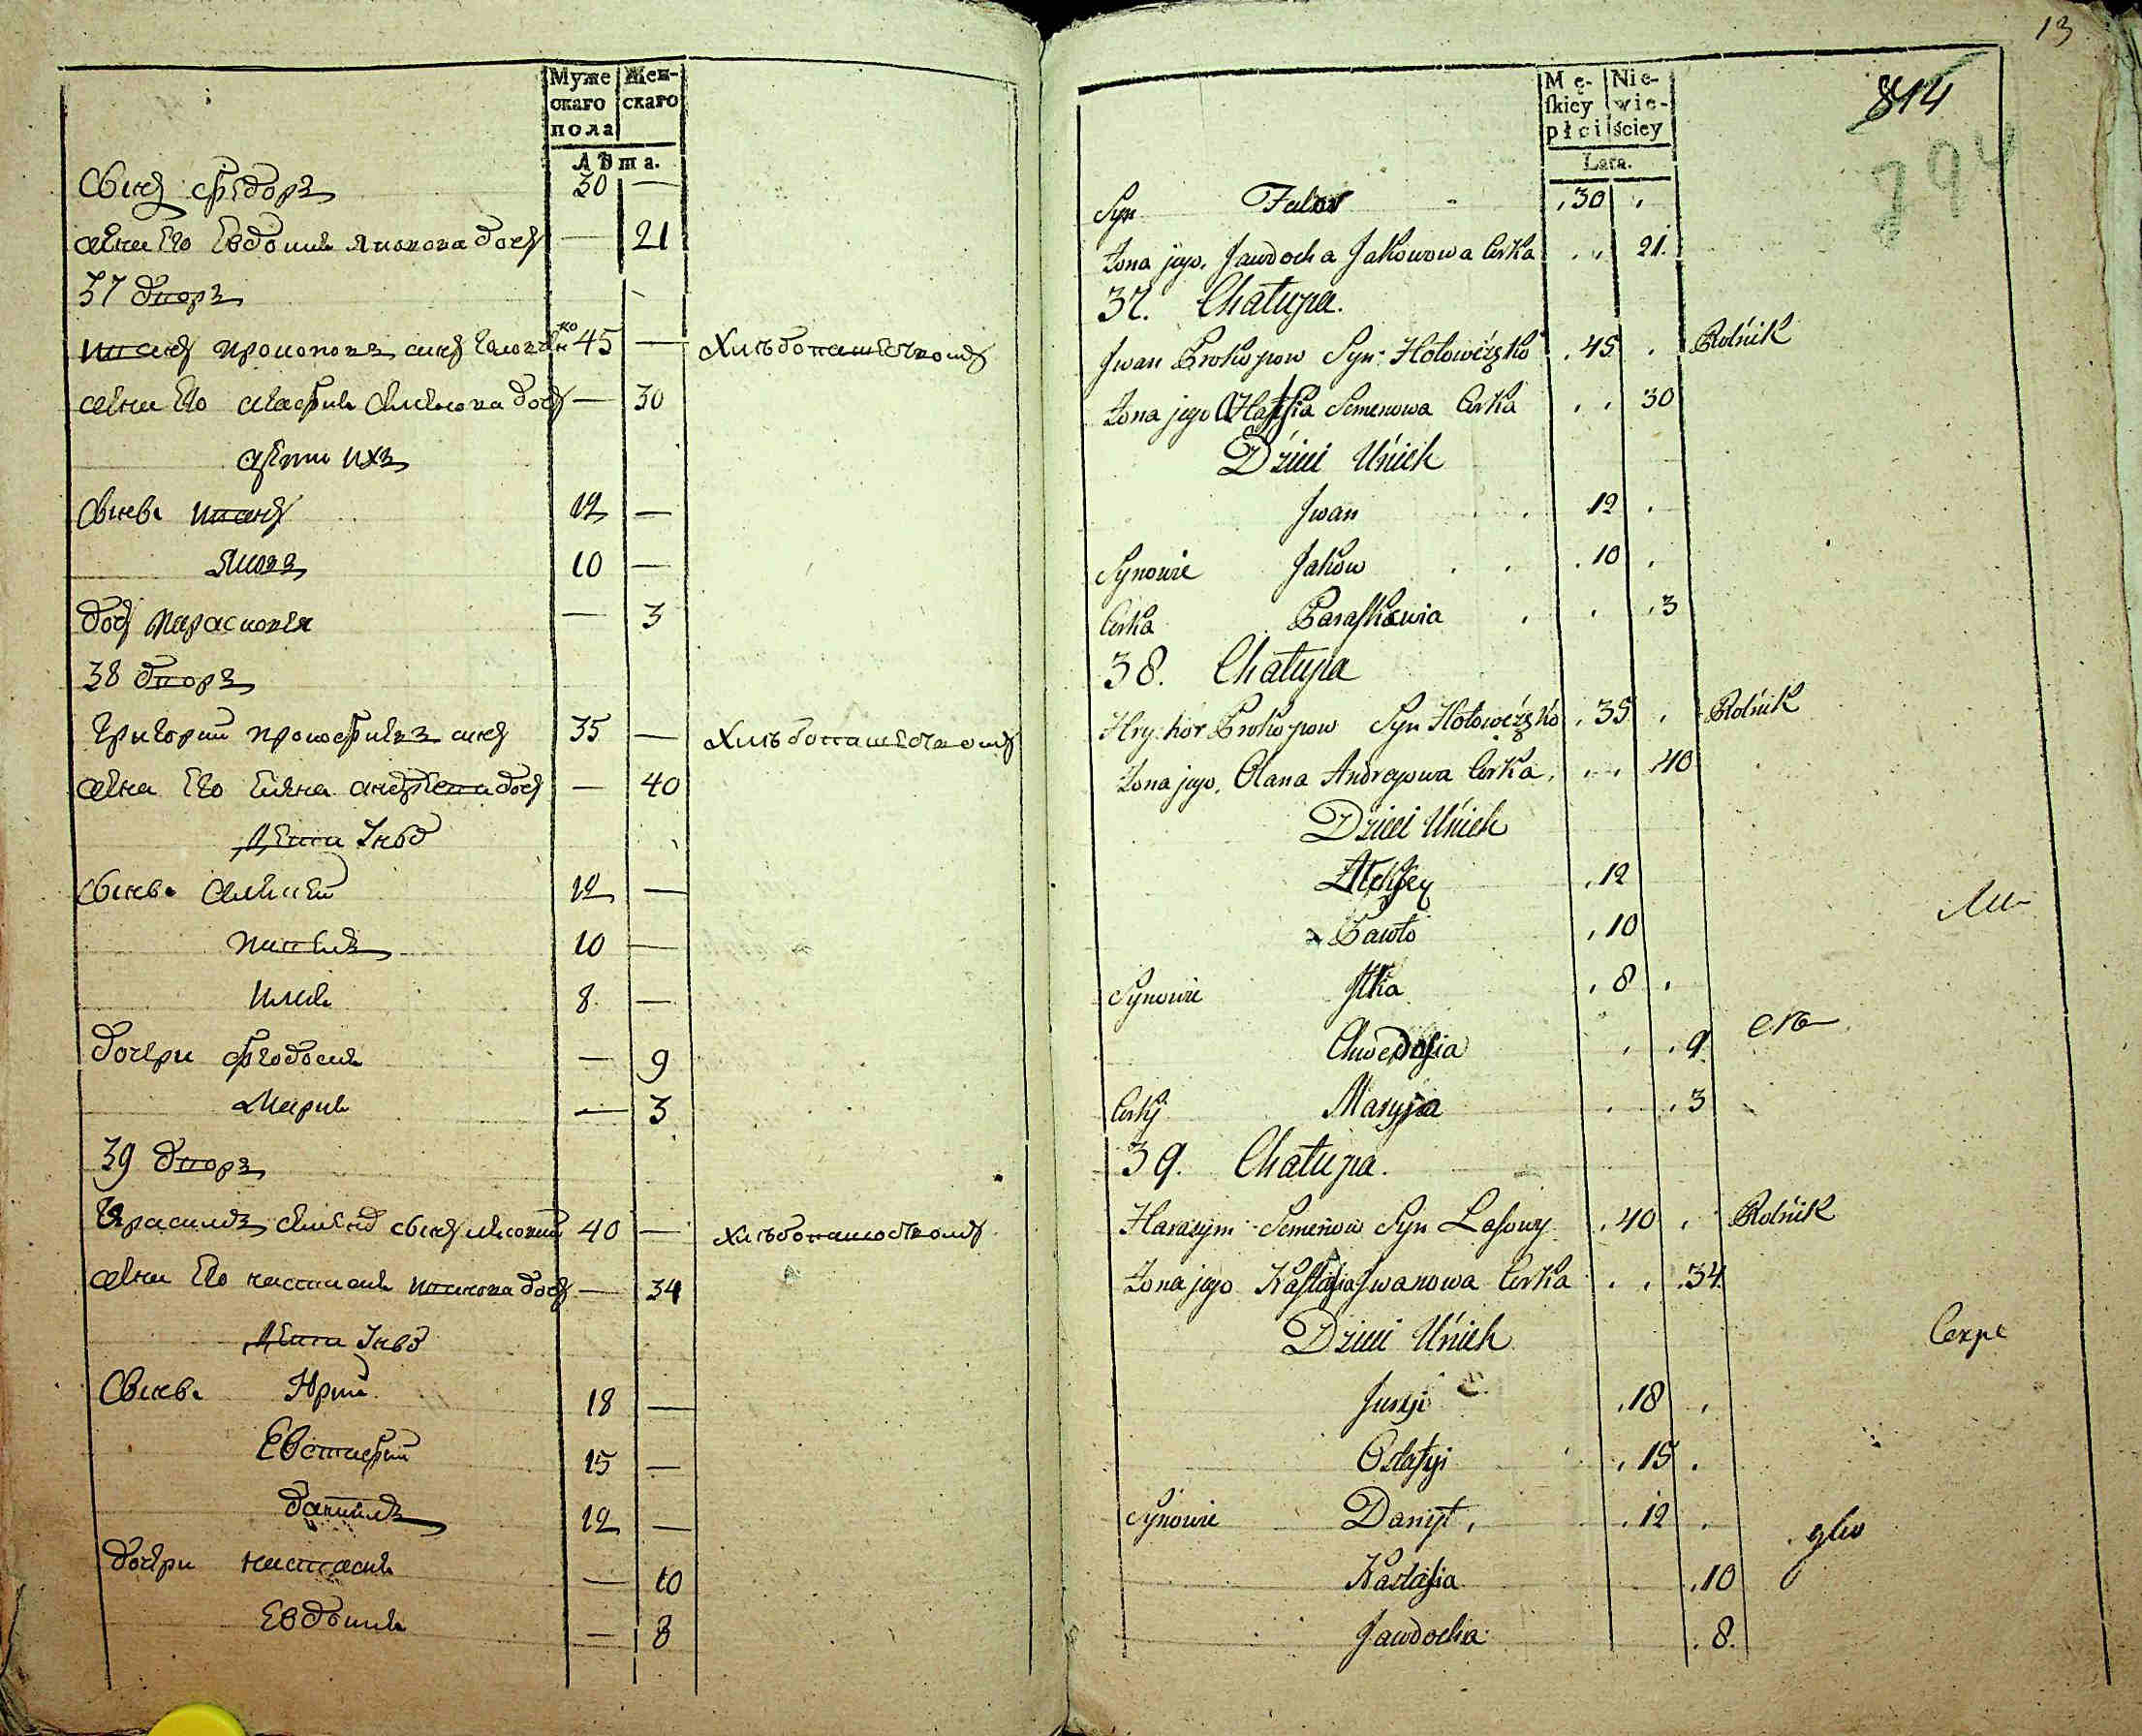 Муже скаго пола
Жен- скаго
Лѣта.
Сынъ Ѳедоръ 30 —
жена Его Евдокия Яковова дочь — 21
37 дворъ
Иванъ Прокоповъ сынъ Головѣнко 45 — Хлѣбопашествомъ
жена Его Агафия Семенова дочь — 30
дети ихъ
Сынов. Иванъ 12 —
Яковъ 10 —
дочь Парасковея — 3
38 дворъ
Григорий Прокофиевъ сынъ 35 — Хлѣбопашествомъ
жена Его Елена Андреева дочь — 40
Дети
Сынов. Алексей 12 —
Павелъ 10 —
Илия 8 —
дочери Феодосия — 9
Мария — 3
39 дворъ
Герасимъ Семенов сынъ Лисовий 40 — Хлѣбопашествомъ
жена Его Настасия Иванова дочь — 34
Дети
Сынов. Юрий 18 —
Евстафий 15 —
Данилъ 12 —
дочери Настасия — 10
Евдокия — 8
13
814
794
Mę- skiey płci
Nie- wie- ściey
Lata.
Syn Fedor 30
Żona jego Jawdocha Jakowowa Curka 21.
37. Chałupa.
Jwan Prokopow Syn Hołowézko 45 Rolnik
Żona jego Hapka Semenowa Curka 30
Dzieci U nich
Jwan 12
Synowie Jakow 10
Curka Paraskewia 3
38. Chałupa
Hryhor Prokopow Syn Hołowézko 35 Rolnik
Żona jego, Olana Andrejowa Curka 40
Dzieci U nich
Alexsey 12
Pawło 10
Synowie Jlia 8
Chwedosia 9
Curky Maryja 3
39. Chałupa.
Harasym Semenow Syn Lasowy 40 Rolnik
Żona jego Nastasia Jwanowa Curka 34
Dzieci U nich
Juryi 18
Ostafyi 15
Synowie Danył 12
Nastasia 10
Jawdocha 8.